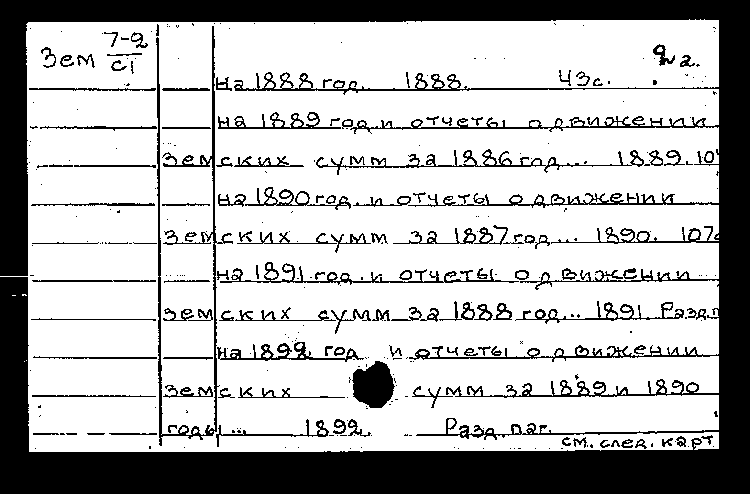 Зем 7-2
С1
2
на 1888 год. 1888. 43с.
на 1889 год и отчеты о движении
земских сумм за 1886 год... 1889. 10
на 1890 год и отчеты о движении
земских сумм за 1887 год... 1890. 107с
на 1891 год и отчеты о движении
земских сумм за 1888 год... 1891. Разд.п
на 1892 год и отчеты о движении
земских сумм за 1889 и 1890
годы... 1892. Разд. паг.
см. след. карт